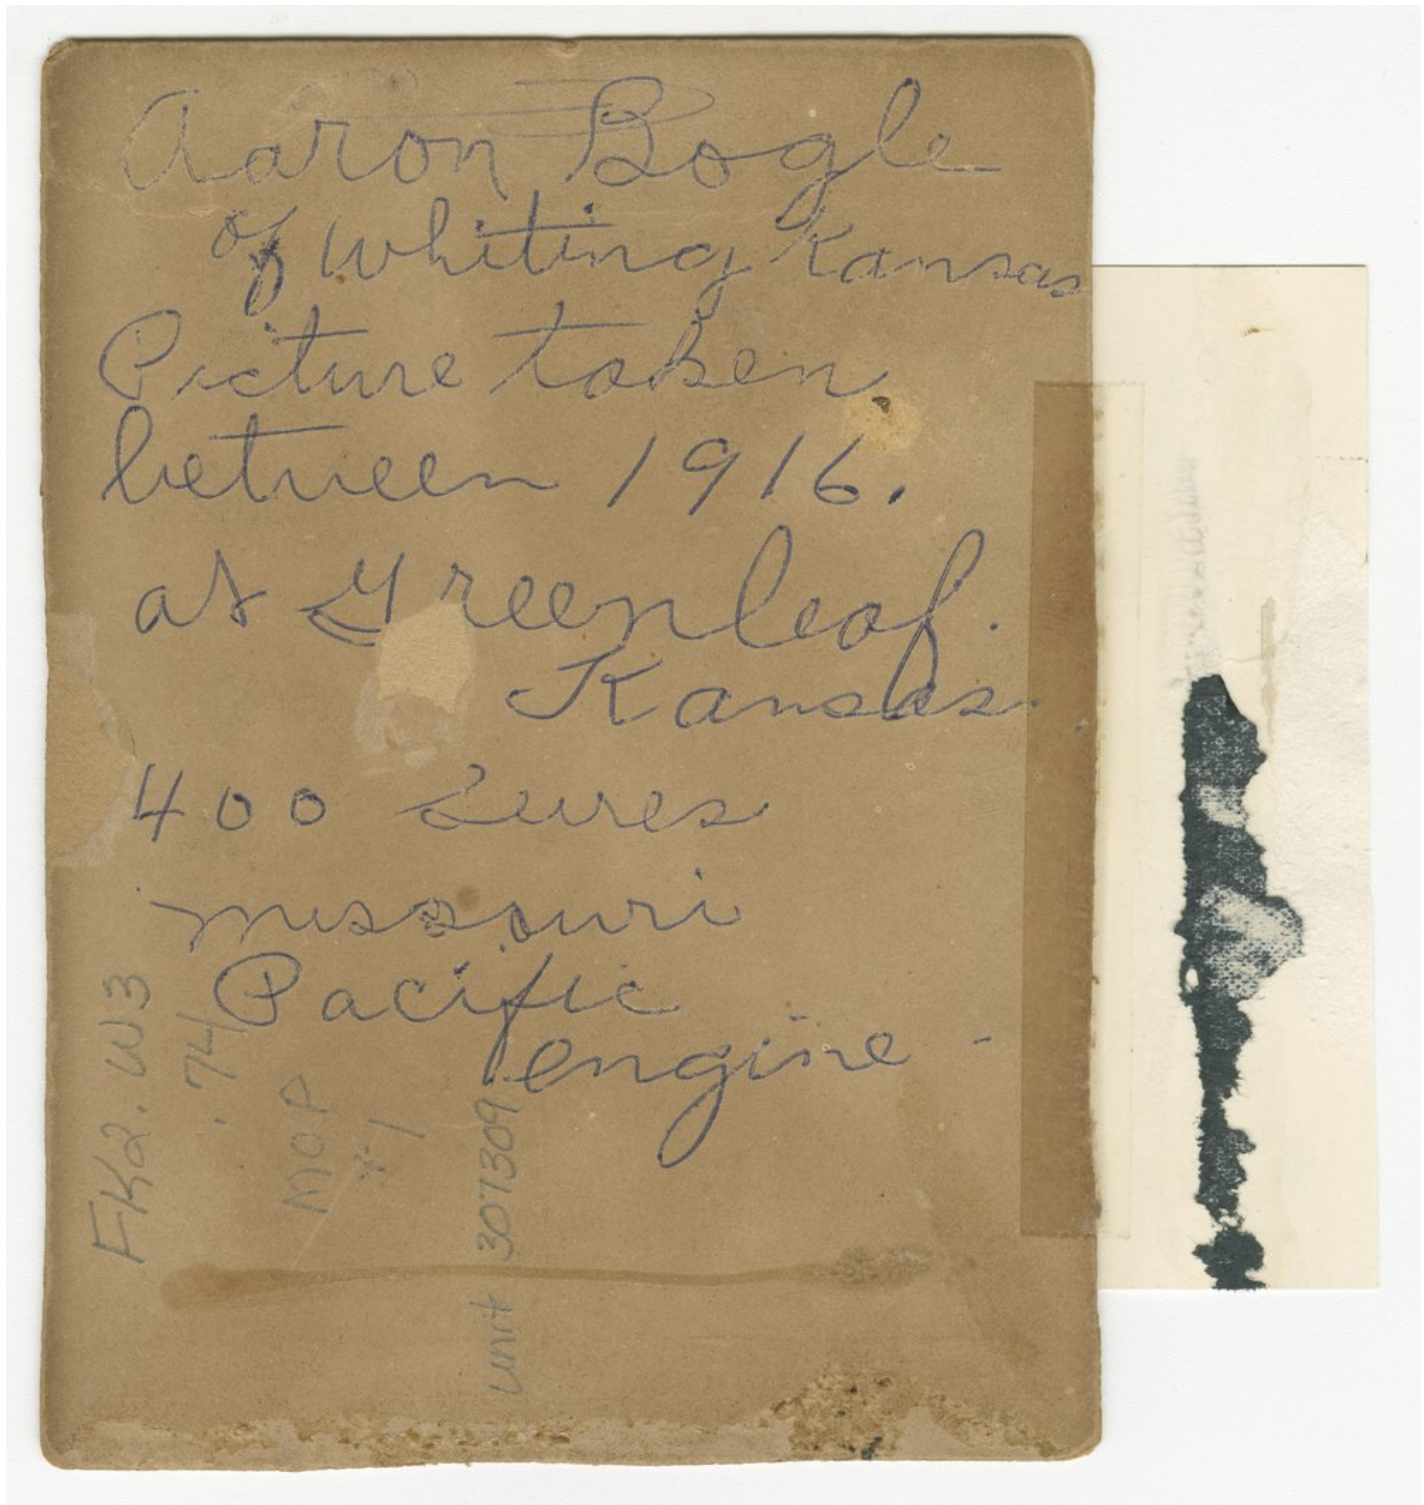 Aaron Bogle
of Whiting Kansas
Picture taken
between 1916.
at Greenleaf.
Kansas.
400 Sures
Missouri
Pacific
engine -
FK2.W3
.74
MOP
*1
unit 307309